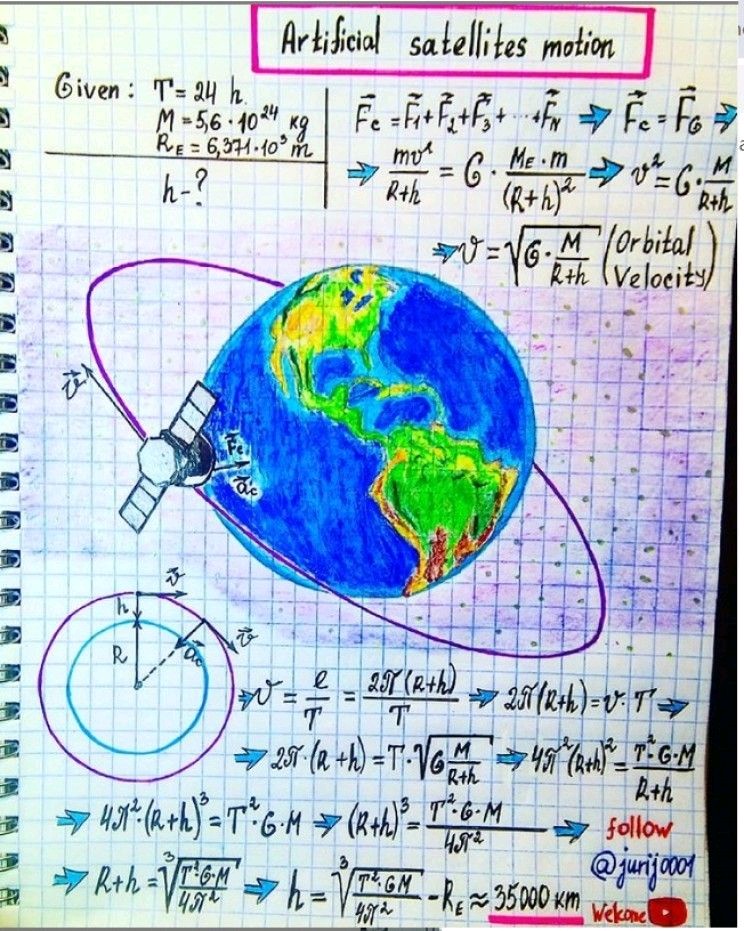 Artificial satellites motion
Given : T = 24 h.
M = 5,6 · 10²⁴ kg
R_E = 6,371 · 10³ m
h - ?
F⃗c = F⃗₁ + F⃗₂ + F⃗₃ + ··· + F⃗_N ⇒ F⃗c = F⃗_G ⇒
⇒ mv²/(R+h) = G · M_E · m/(R+h)² ⇒ v² = G · M/(R+h)
⇒ v = √(G · M/(R+h)) (Orbital Velocity)
v⃗
F⃗c
a⃗c
v⃗
h
R
a⃗c
v⃗
⇒ v = l/T = 2π(R+h)/T ⇒ 2π(R+h) = v · T ⇒
⇒ 2π · (R+h) = T · √(G M/(R+h)) ⇒ 4π²(R+h)² = T² · G · M/(R+h)
⇒ 4π² · (R+h)³ = T² · G · M ⇒ (R+h)³ = T² · G · M/4π² ⇒
⇒ R+h = ³√(T² · G · M/4π²) ⇒ h = ³√(T² · GM/4π²) - R_E ≈ 35000 km
follow
@jurij0001
Welcome